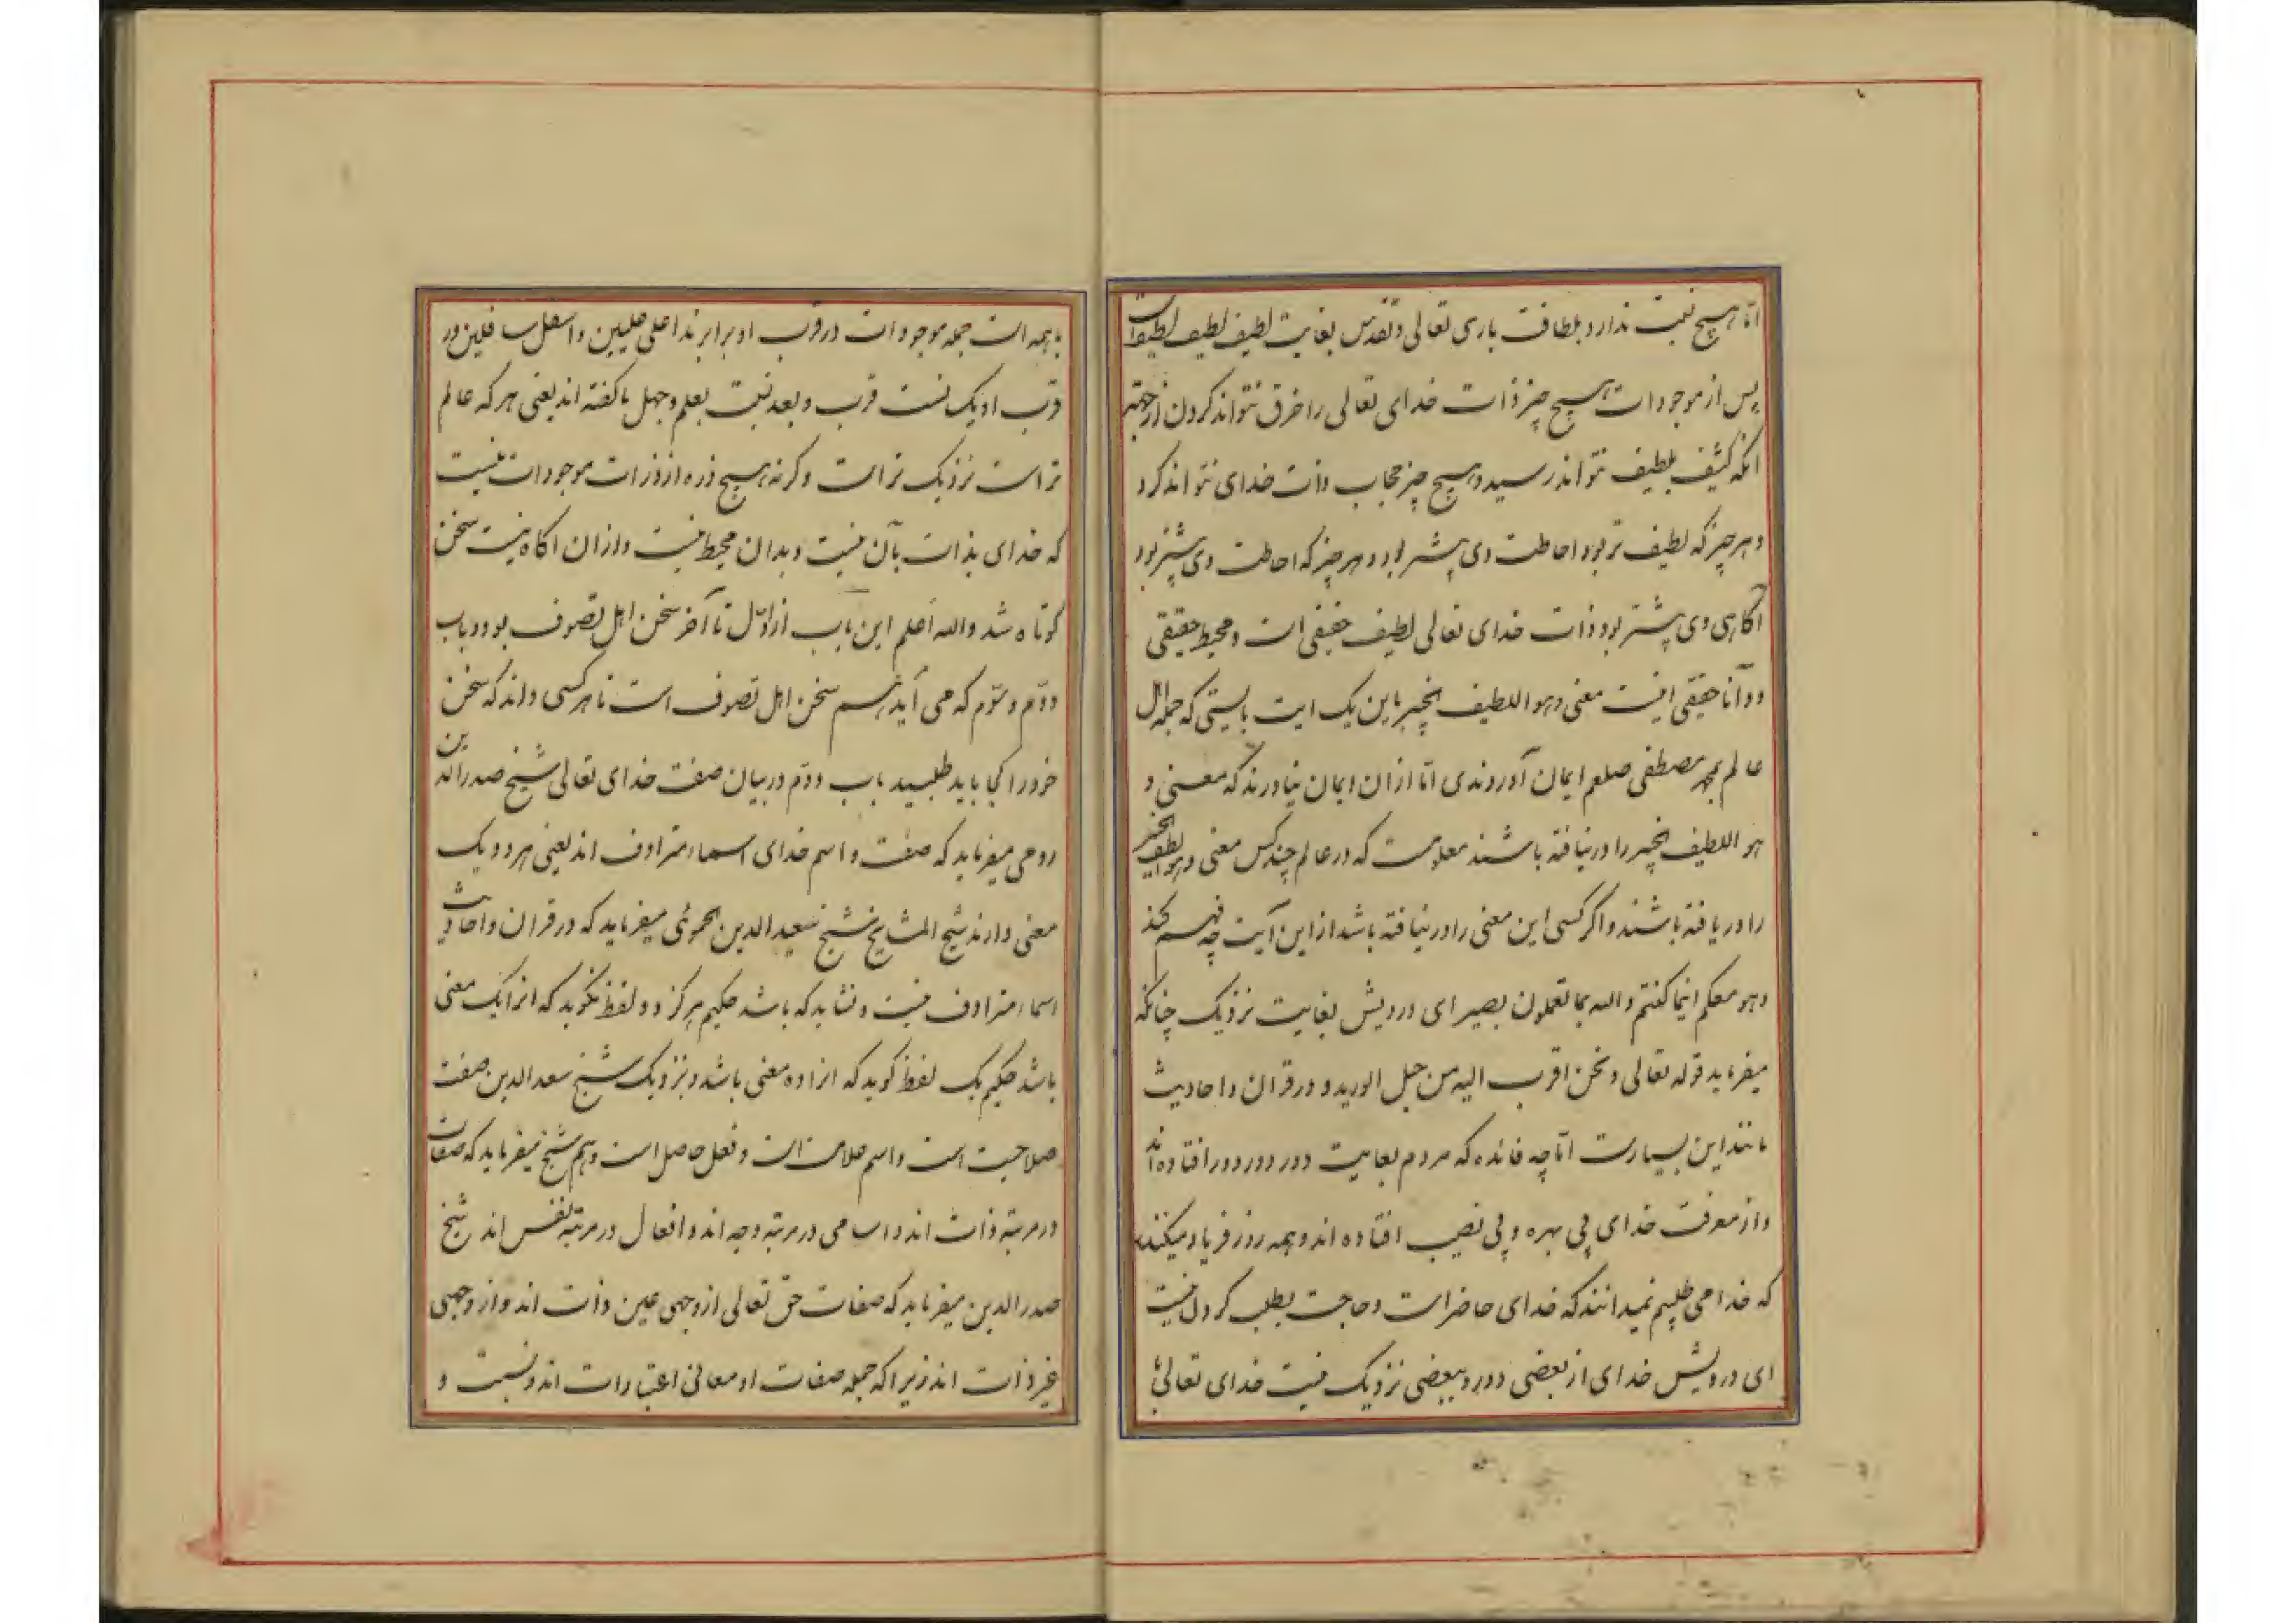 اما هیچ نسبت ندارد بلطافت باری تعالی و تقدس بغایت لطیف لطیف لطیف است
پس از موجودات هیچ چیز ذات خدای تعالی را خرق نتواند کردن از جهة
انکه کثیف بلطیف نتواند رسید و هیچ چیز حجاب ذات خدای نتواند کرد
و هر چیز که لطیف تر بود احاطت وی بیشتر بود و هر چیز که احاطت وی بیشتر بود
آکاهی وی بیشتر بود و ذات خدای تعالی لطیف حقیقی است و محیط حقیقی
و دآنا حقیقی اینست معنی و هو اللطیف الخبیر باین یک ایت بایستی که جمله اهل
عالم بمحمد مصطفی صلعم ایمان آوردندی اما ازان ایمان نیاورند که معنی و
هو اللطیف الخبیر را درنیافته باشند معلومست که در عالم چند کس معنی و هو اللطیف الخبیر
را دریافته باشند و اکر کسی این معنی را درنیافته باشد از این آیت چه فهم کند
و هو معکم اینما کنتم و الله بما تعملون بصیر ای درویش بغایت نزدیک چنانکه
میفرماید قوله تعالی و نحن اقرب الیه من حبل الورید و در قران و احادیث
مانند این بسیارست اما چه فائده که مردم بغایت دور دور دور افتاده اند
و از معرفت خدای بی بهره و بی نصیب افتاده اند و همه روز فریاد میکنند
که خدا می طلبیم نمیدانند که خدای حاضر است و حاجت بطلب کردن نیست
ای درویش خدای از بعضی دور و ببعضی نزدیک نیست خدای تعالی
با همه است جمله موجودات در قرب او برابرند اعلی علیین و اسفل سافلین در
قرب او یک نسبت قرب و بعد نسبت بعلم و جهل ما کفته اند یعنی هر که عالم
تر است نزدیک تر است و کرنه هیچ ذره از ذرات موجودات نیست
که خدای بذات بآن نیست و بدان محیط نیست و ازان اکاه نیست سخن
کوتاه شد والله اعلم این باب از اول تا آخر سخن اهل تصوف بود و باب
دوم و سوم که می آید هم سخن اهل تصوف است تا هر کسی داند که سخن
خود را کجا باید طلبید باب دوم در بیان صفت خدای تعالی شیخ صدر الدین
رومی میفرماید که صفت و اسم خدای اسماء مترادف اند یعنی هر دو یک
معنی دارند شیخ المشایخ شیخ سعید الدین الحموئی میفرماید که در قران و احادیث
اسماء مترادف نیست و نشاید که باشد حکیم هرکز دو لفظ نکوید که انرا یک معنی
باشد حکیم یک لفظ کوید که انرا ده معنی باشد و نزدیک شیخ سعد الدین صفت
صلاحیت است و اسم علامت است و فعل حاصل است و هم شیخ میفرماید که صفات
در مرتبهٔ ذات اند و اسامی در مرتبهٔ وجه اند و افعال در مرتبهٔ نفس اند شیخ
صدر الدین میفرماید که صفات حق تعالی از وجهی عین ذات اند و از وجهی
غیر ذات اند زیرا که جمله صفات او معانی اعتبارات اند و نسبت و